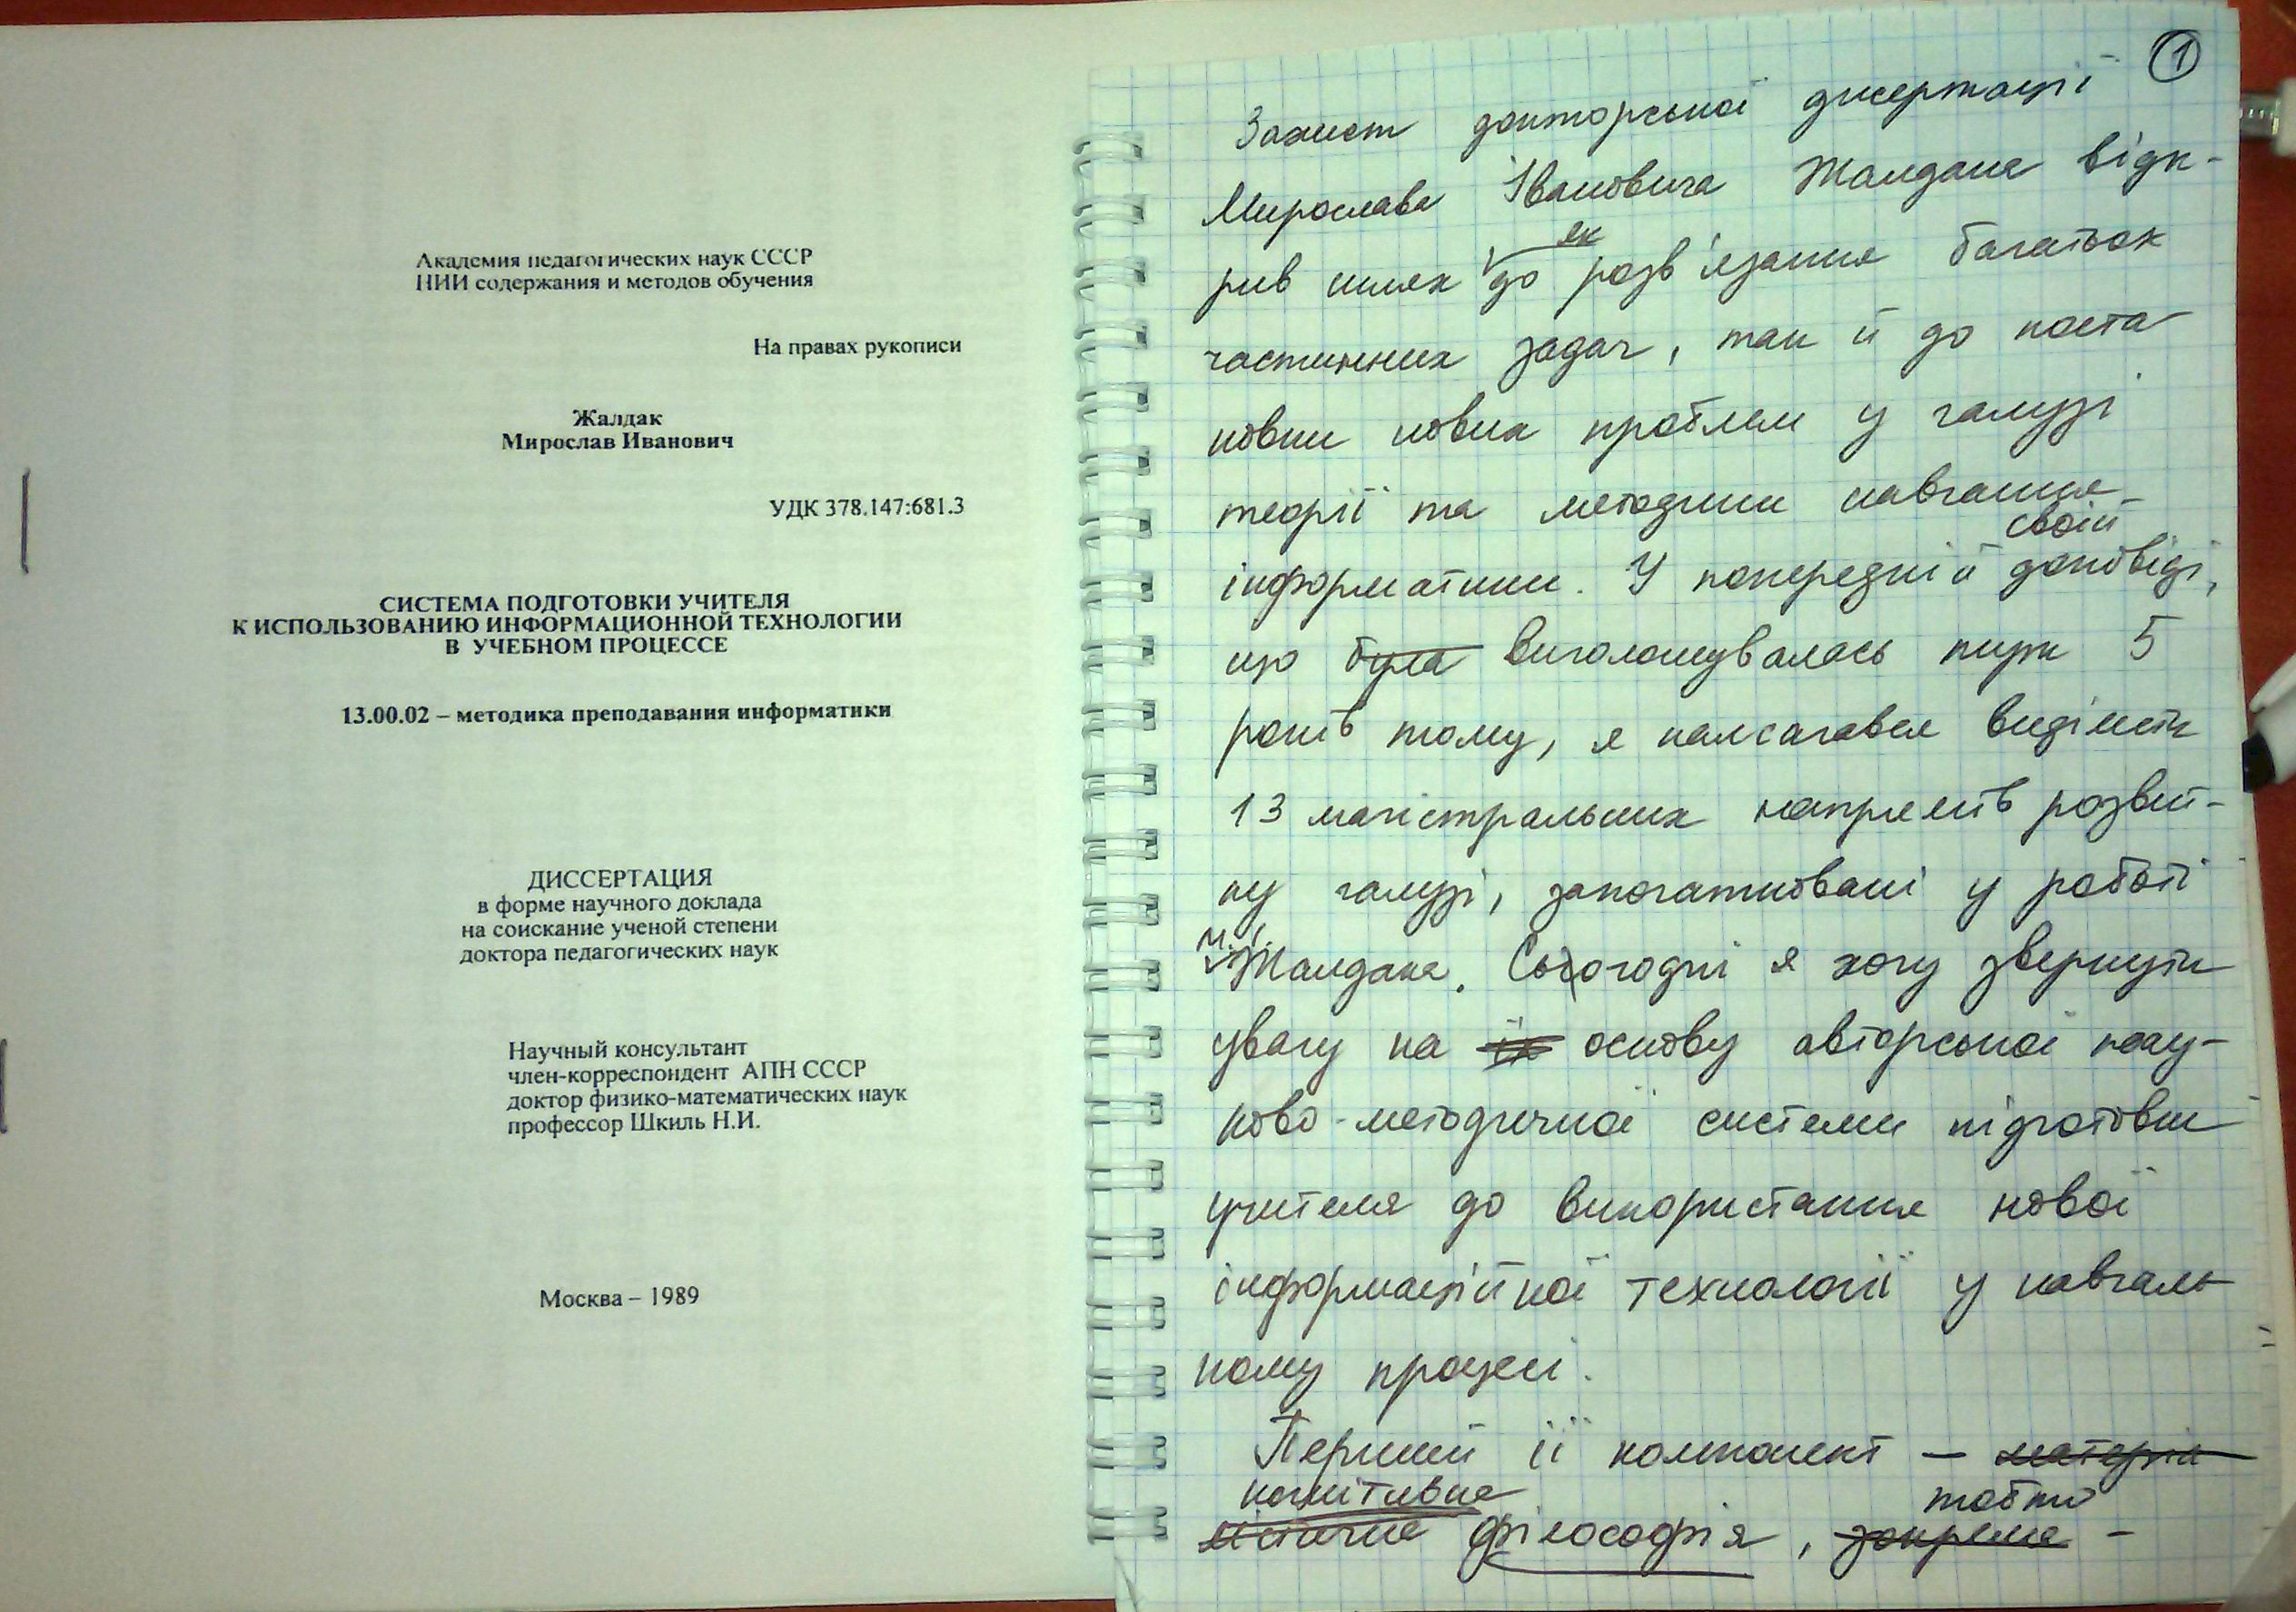 Академия педагогических наук СССР
НИИ содержания и методов обучения
На правах рукописи
Жалдак
Мирослав Иванович
УДК 378.147:681.3
СИСТЕМА ПОДГОТОВКИ УЧИТЕЛЯ
К ИСПОЛЬЗОВАНИЮ ИНФОРМАЦИОННОЙ ТЕХНОЛОГИИ
В УЧЕБНОМ ПРОЦЕССЕ
13.00.02 – методика преподавания информатики
ДИССЕРТАЦИЯ
в форме научного доклада
на соискание ученой степени
доктора педагогических наук
Научный консультант
член-корреспондент АПН СССР
доктор физико-математических наук
профессор Шкиль Н.И.
Москва – 1989
1
Захист докторської дисертації
Мирослава Івановича Жалдака відк-
як
рив шлях до розв'язання багатьох
частинних задач, так й до поста
новки нових проблем у галузі
теорії та методики навчання
своїй
інформатики. У попередній доповіді,
що була виголошувалась 5
років тому, я намагався виділити
13 магістральних напрямів розвит-
ку галузі, започатковані у роботі
М.І.
Жалдака. Сьогодні я хочу звернути
увагу на їх основу авторської нау-
ково-методичної системи підготовки
учителя до використання нової
інформаційної технології у навчаль
ному процесі.
Перший її компонент – матерія
когнітивна тобто
філософія, зокрема –